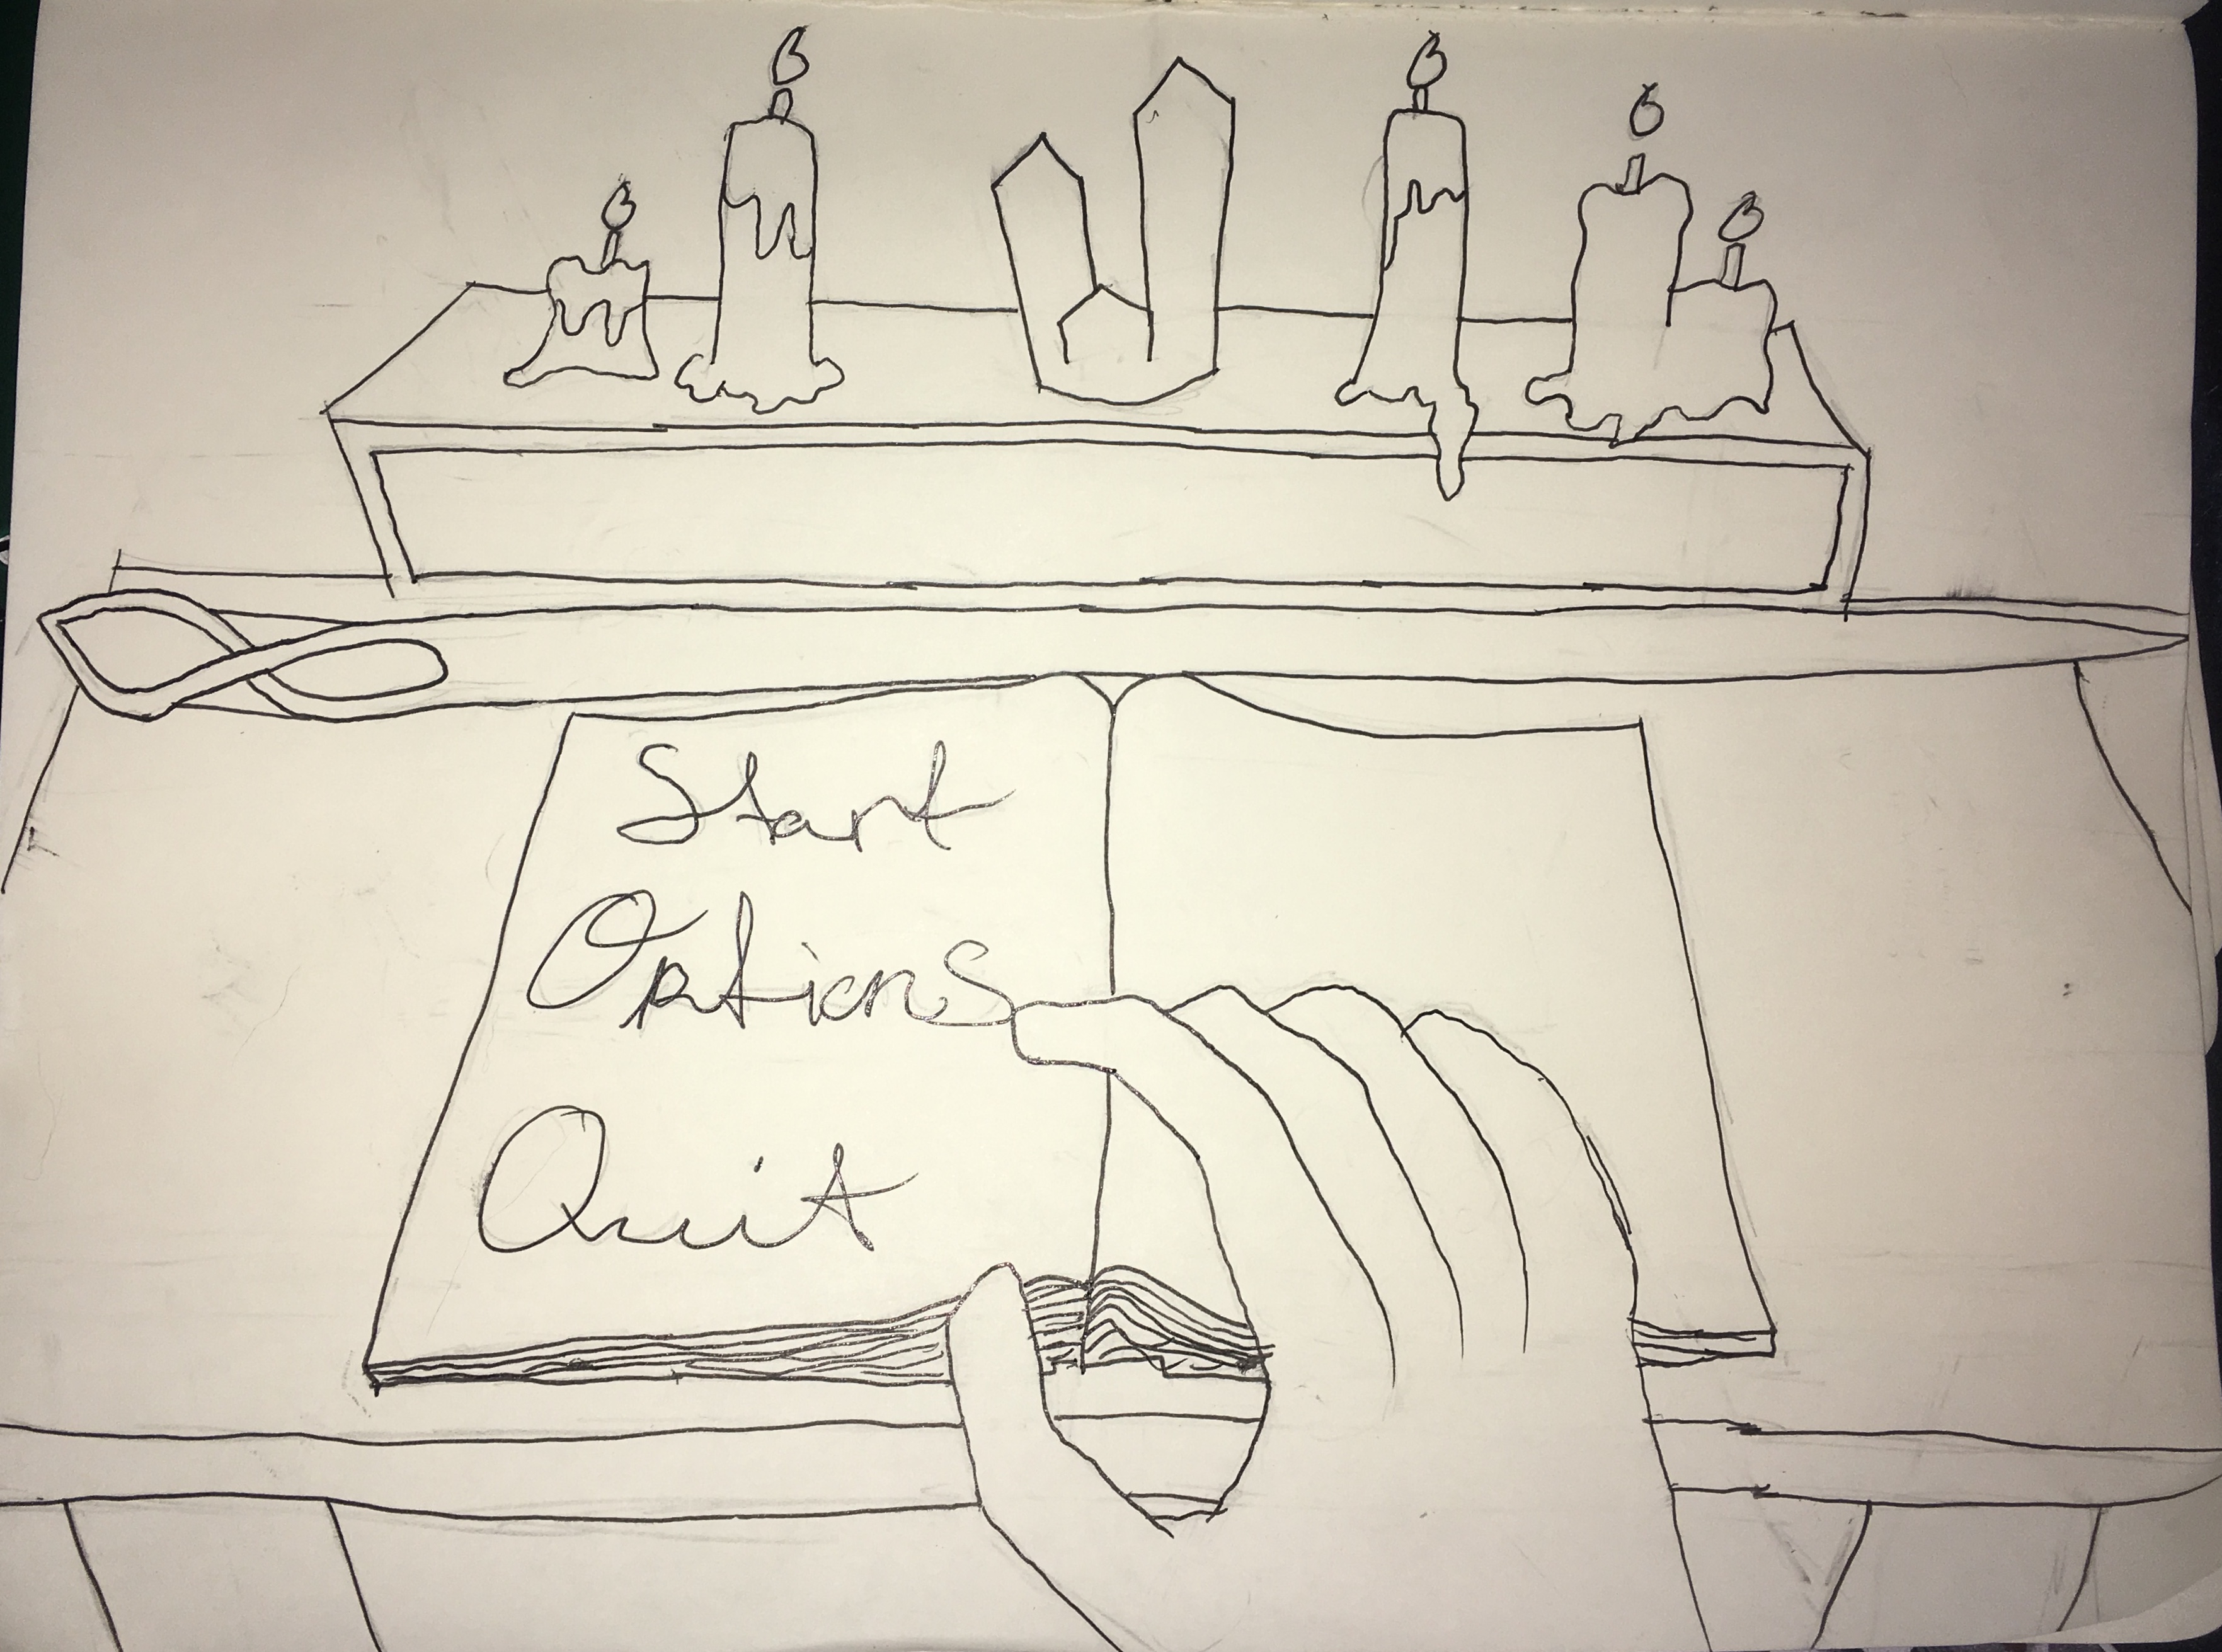 Start
Options
Quit